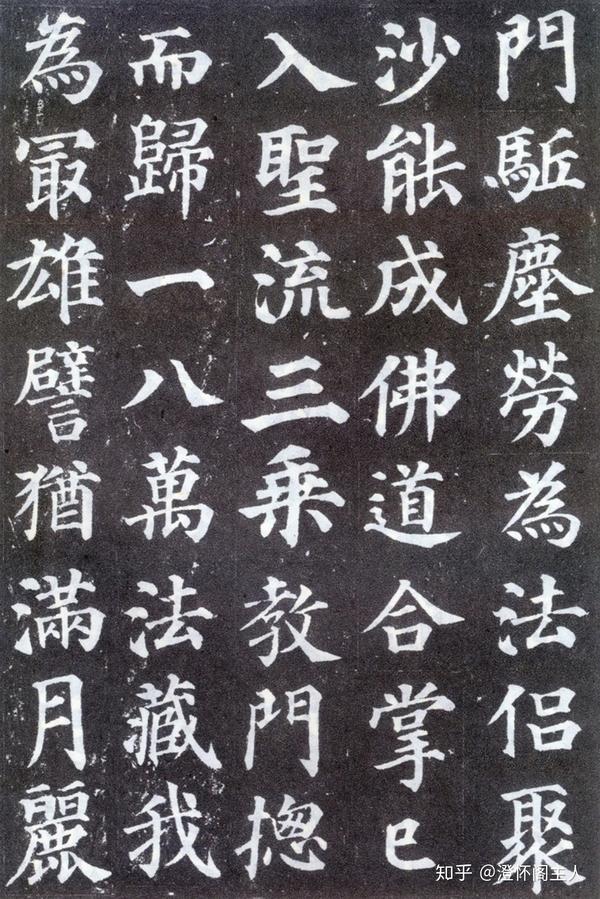 門駈塵勞為法侶聚
沙能成佛道合掌已
入聖流三乗教門揔
而歸一八萬法藏我
為冣雄譬猶滿月麗
知乎 @澄怀阁主人